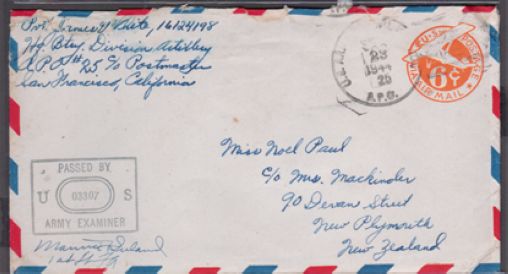 Pvt. Irmes F. White, 16124198
Hq Btry. Division Artillery
A.P.O. # 25 c/o Postmaster
San Francisco, California
U.S. A
23
1944
25
A.P.O.
6¢
VIA AIR MAIL
Miss Noel Paul
c/o Mrs. Mackinder
90 Devon Street
New Plymouth
New Zealand
PASSED BY
U 03307 S
ARMY EXAMINER